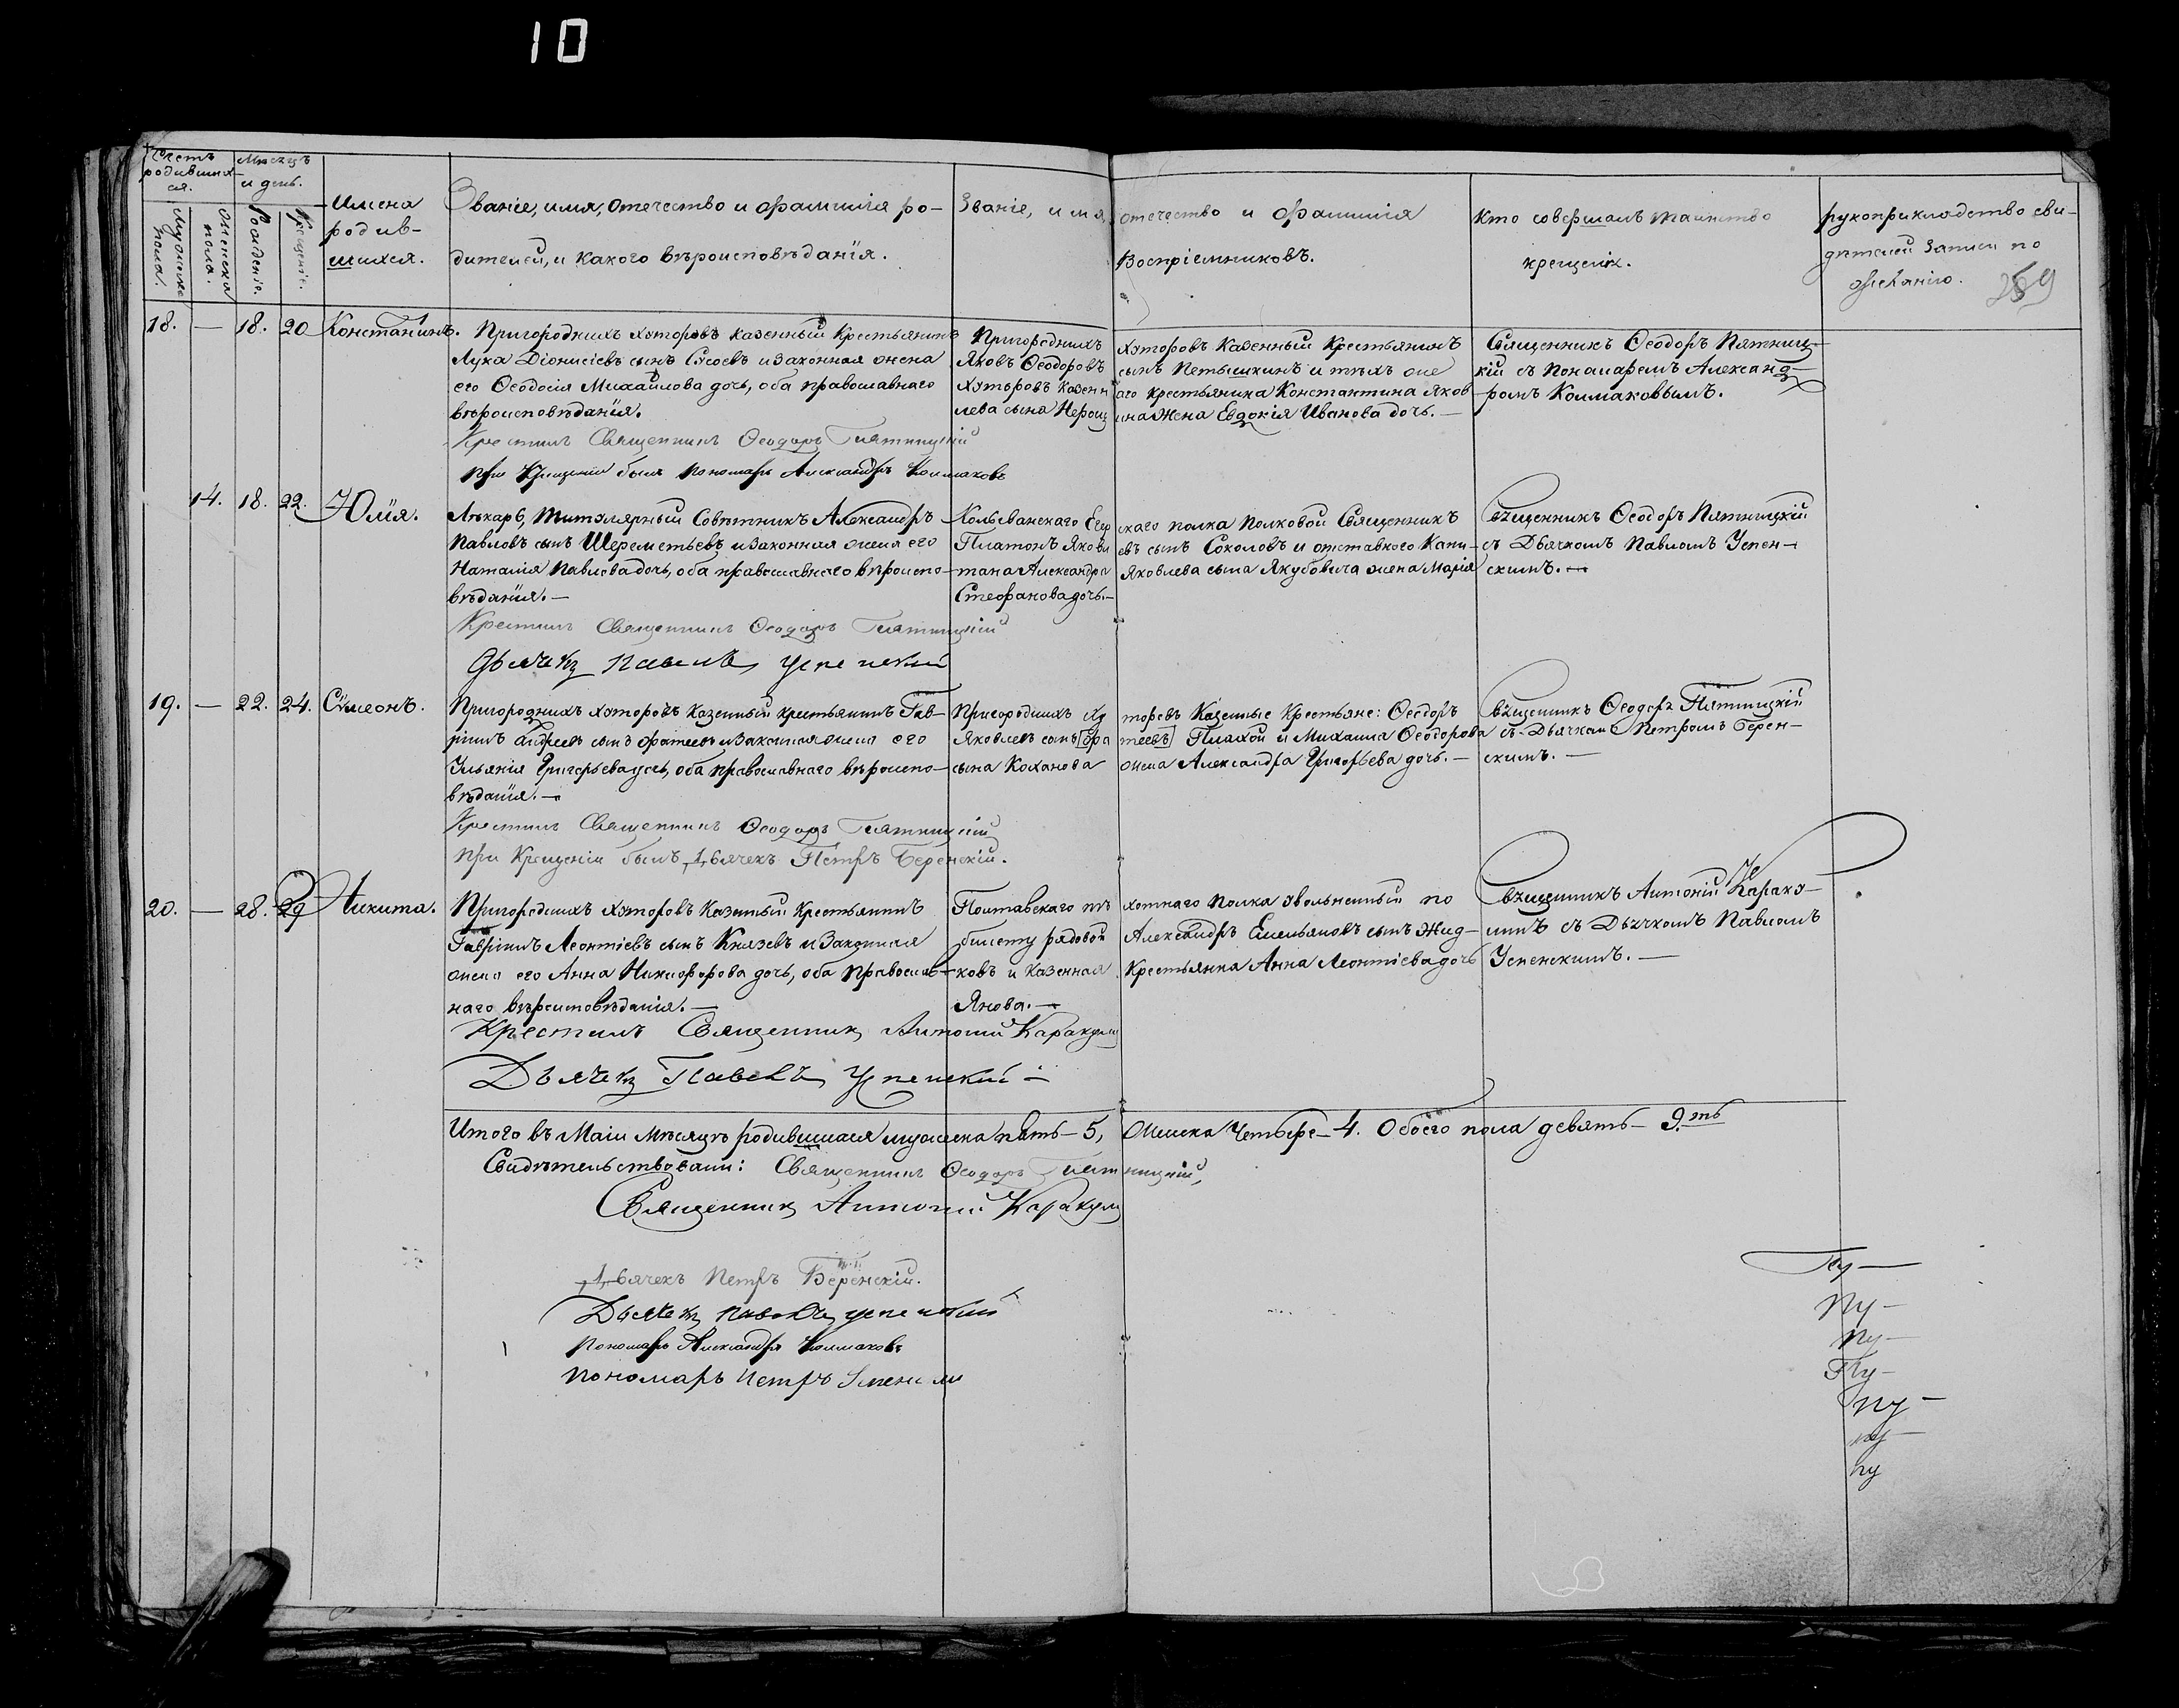 10
Счетъ родившихся.
Мѣсяцъ и день.
Мужеска пола.
Женска пола.
Рожденіе.
Крещеніе.
Имена родившихся.
Званіе, имя, отечество и фамилія родителей, и какого вѣроисповѣданія.
Званіе, имя, отечество и фамилія
Воспріемниковъ.
Кто совершалъ таинство
крещенія.
рукоприкладство сви-
дѣтелей записи по
желанію.
259
18. — 18. 20 Константинъ.
Пригороднихъ хуторовъ казенный Крестьянинъ
Лука Діонисіевъ сынъ Сысоевъ и законная жена
его Ѳеодосія Михайлова дочь, оба православнаго
вѣроисповѣданія.
Крестилъ Священникъ Ѳеодоръ Пятницкій
при Крещеніи былъ Пономарь Александръ Колмаковъ
Пригороднихъ хуторовъ Казенный Крестьянинъ
Яковъ Ѳеодоровъ сынъ Петышкинъ и тѣхъ же
хуторовъ казеннаго крестьянина Константина Яков-
лева сына жена Евдокія Иванова дочь. —
Священникъ Ѳеодоръ Пятниц-
кій съ Пономаремъ Александ-
ромъ Колмаковымъ.
14. 18. 22. Юлія.
Лѣкарь, Титулярный Совѣтникъ Александръ
Павловъ сынъ Шереметьевъ и законная жена его
Наталія Павлова дочь, оба православнаго вѣроиспо-
вѣданія. —
Крестилъ Священникъ Ѳеодоръ Пятницкій
Дьячекъ Павелъ Успенскій
Колыванскаго Егерскаго полка полковой Священникъ
Платонъ Яковлевъ сынъ Соколовъ и отставного Капи-
тана Александра Яковлева сына Якубовича жена Марія
Стефанова дочь. —
Священникъ Ѳеодоръ Пятницкій
съ Дьячкомъ Павломъ Успен-
скимъ. —
19. — 22. 24. Сѵмеонъ.
Пригороднихъ хуторовъ Казенный крестьянинъ Гав-
ріилъ Андреевъ сынъ Фатеевъ и законная жена его
Ульянія Григорьева дочь, оба православнаго вѣроиспо-
вѣданія. —
Крестилъ Священникъ Ѳеодоръ Пятницкій
При Крещеніи былъ Дьячекъ Петръ Беренскій.
Пригороднихъ хуторовъ Казенные Крестьяне: Ѳеодоръ
Яковлевъ сынъ [Фатеевъ] Плахой и Михаила Ѳеодорова
сына Коханова жена Александра Григорьева дочь. —
Священникъ Ѳеодоръ Пятницкій
съ Дьячкомъ Петромъ Берен-
скимъ. —
20. — 28. 29 Никита.
Пригороднихъ хуторовъ Казенный Крестьянинъ
Гавріилъ Леонтіевъ сынъ Князевъ и Законная
жена его Анна Никифорова дочь, оба Православ-
наго вѣроисповѣданія. —
Крестилъ Священникъ Антоній Каракулинъ
Дьячекъ Павелъ Успенскій —
Полтавскаго пѣхотнаго полка увольненный по
билету рядовой Александръ Емельяновъ сынъ Жид-
ковъ и казенная Крестьянка Анна Леонтіева дочь
Янова. —
Священникъ Антоній Караку-
линъ съ Дьячкомъ Павломъ
Успенскимъ. —
Итого въ Маіи Мѣсяцѣ родившихся мужеска пять — 5, Женска Четыре — 4. Обоего пола девять — 9.ть
Свидѣтельствовали: Священникъ Ѳеодоръ Пятницкій,
Священникъ Антоній Каракулинъ
Дьячекъ Петръ Беренскій.
Дьячекъ Павелъ Успенскій
Пономарь Александръ Колмаковъ
Пономарь Петръ
Пу —
Пу —
Пу —
Пу —
Пу —
пу —
пу